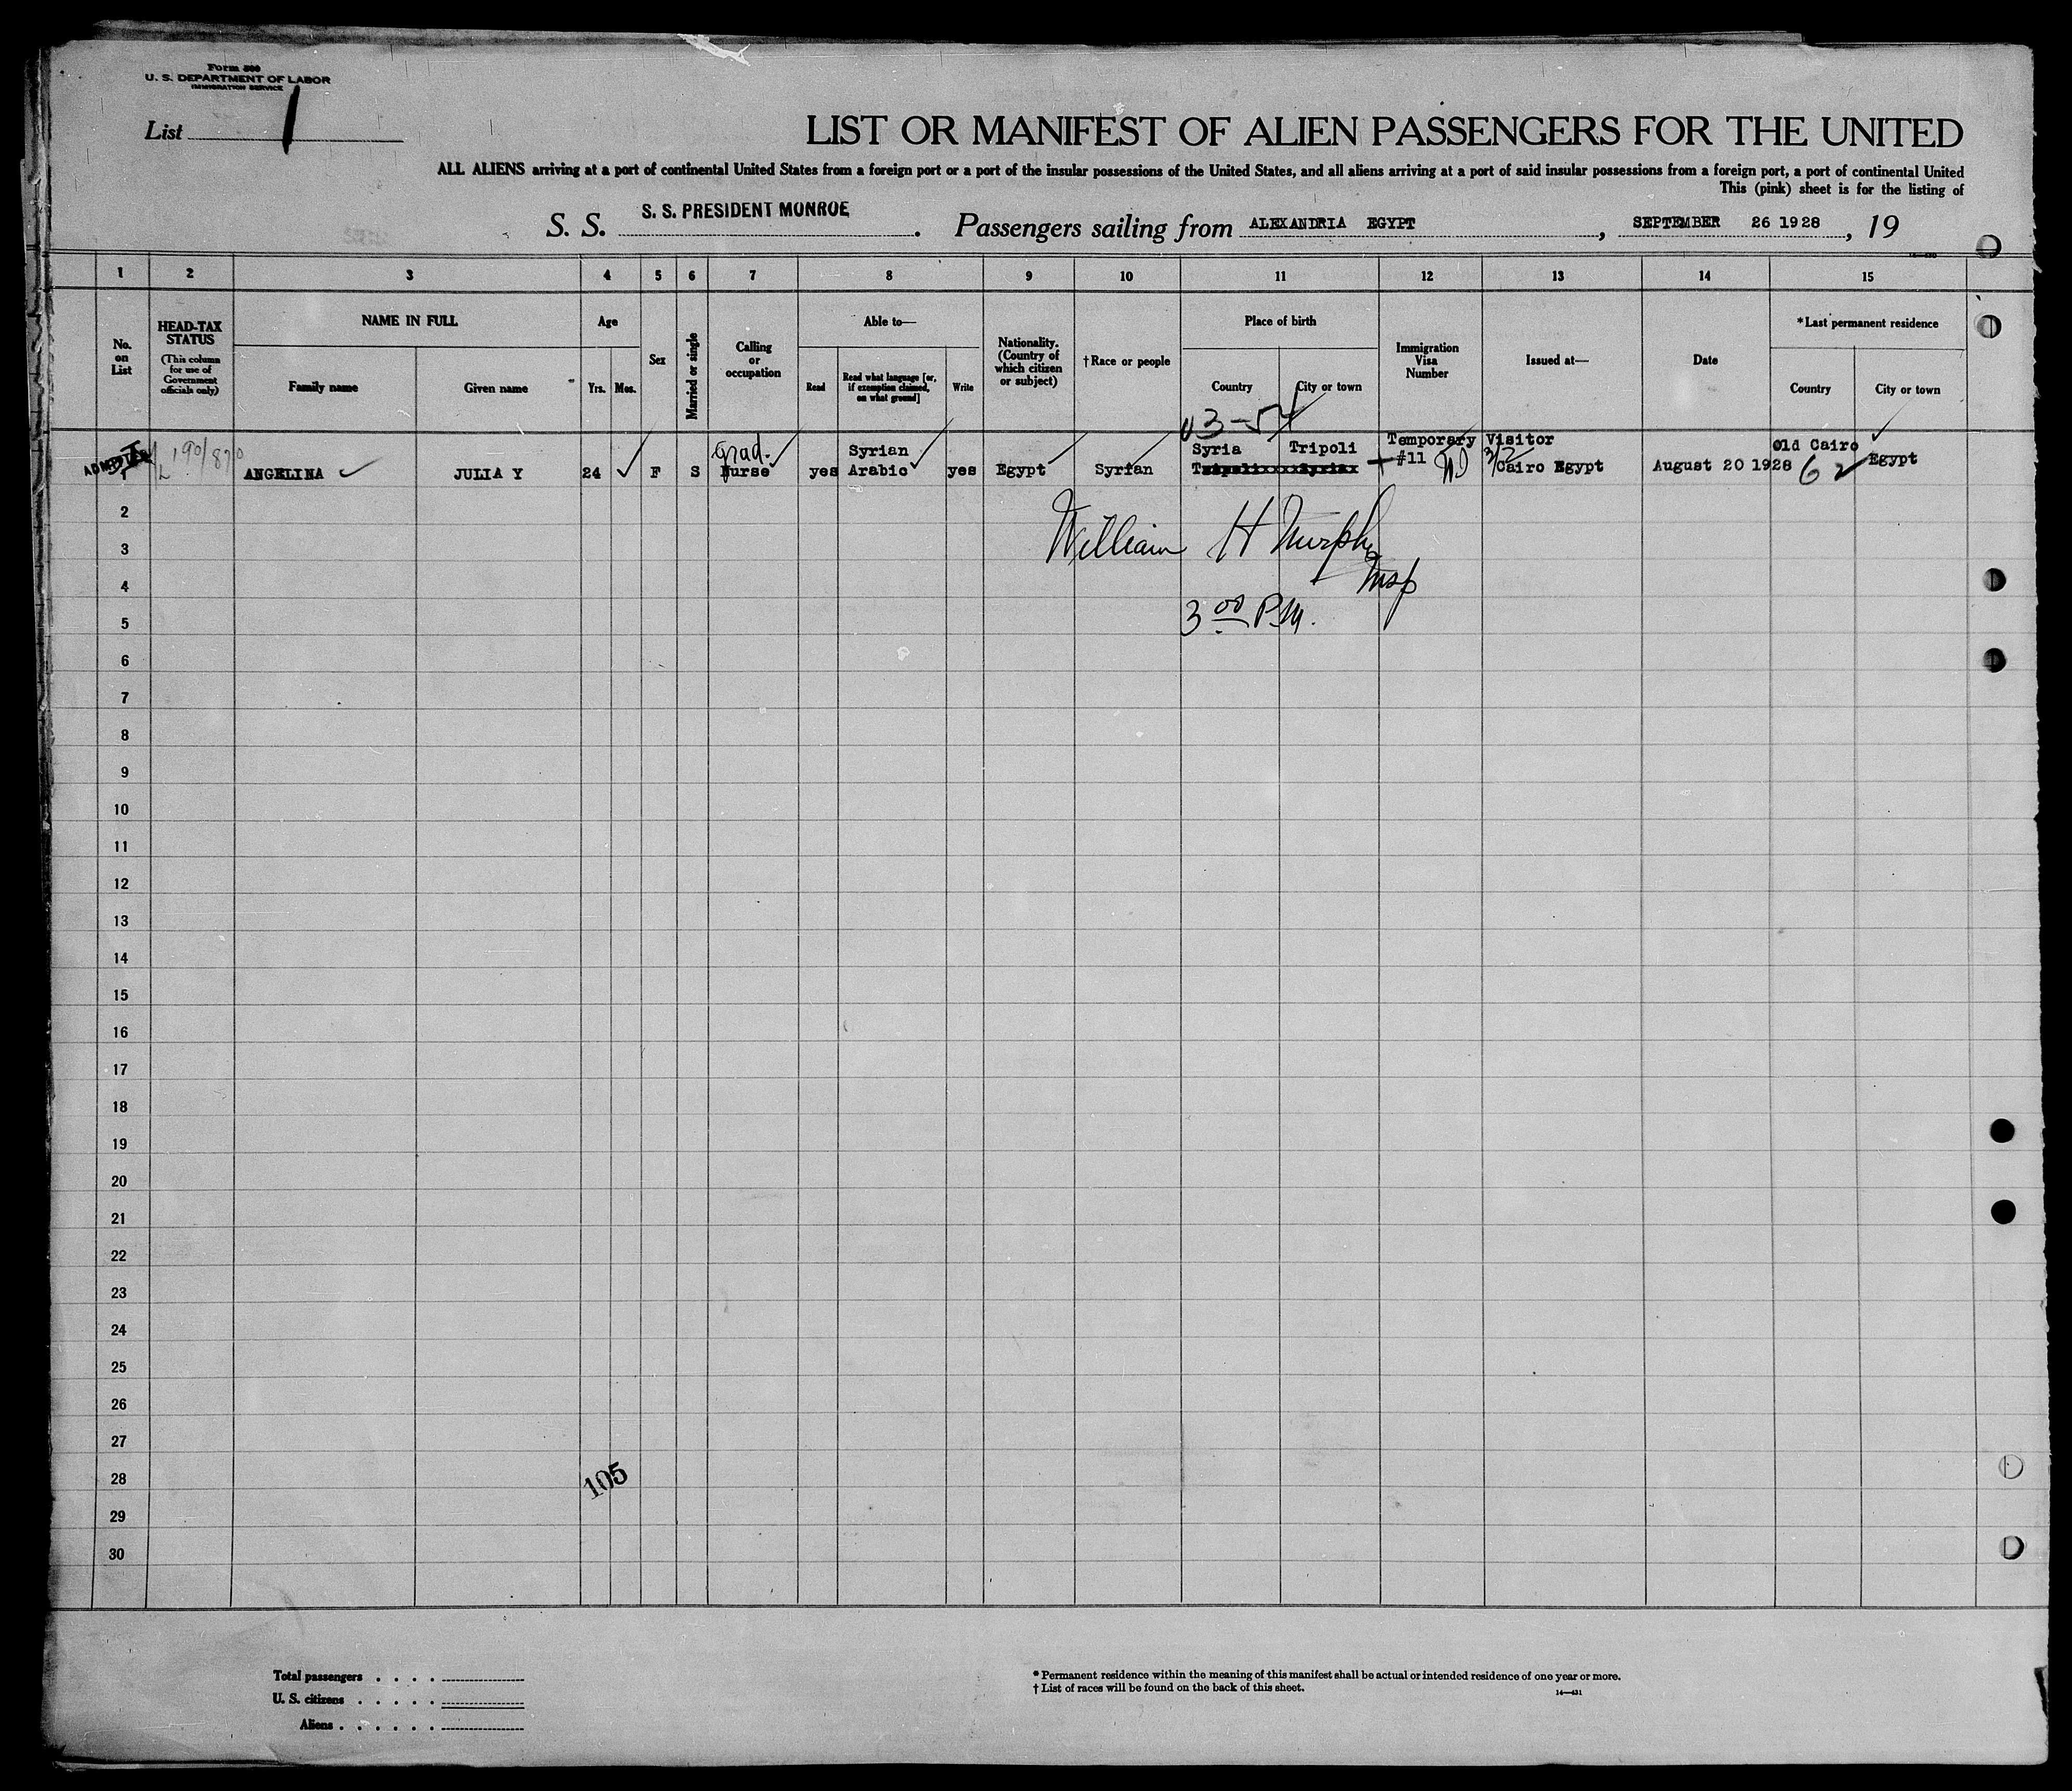 Form 500
U. S. DEPARTMENT OF LABOR
IMMIGRATION SERVICE
List 1
LIST OR MANIFEST OF ALIEN PASSENGERS FOR THE UNITED
ALL ALIENS arriving at a port of continental United States from a foreign port or a port of the insular possessions of the United States, and all aliens arriving at a port of said insular possessions from a foreign port, a port of continental United
This (pink) sheet is for the listing of
S. S. S. S. PRESIDENT MONROE. Passengers sailing from ALEXANDRIA EGYPT, SEPTEMBER 26 1928, 19
1 2 3 4 5 6 7 8 9 10 11 12 13 14 15
No. on List
HEAD-TAX STATUS
(This column for use of Government officials only)
NAME IN FULL
Family name
Given name
Age
Yrs. Mos.
Sex
Married or single
Calling or occupation
Able to—
Read
Read what language [or, if exemption claimed, on what ground]
Write
Nationality. (Country of which citizen or subject)
†Race or people
Place of birth
Country
City or town
Immigration Visa Number
Issued at—
Date
*Last permanent residence
Country
City or town
ADMITTED
1 ANGELINA JULIA Y 24 F S Grad. Nurse yes Syrian Arabic yes Egypt Syrian Syria Tripoli Temporary Visitor #11 Cairo Egypt August 20 1928 Old Cairo Egypt
62
William H Murphy
Insp
3 00 P.M.
2
3
4
5
6
7
8
9
10
11
12
13
14
15
16
17
18
19
20
21
22
23
24
25
26
27
28
105
29
30
Total passengers . . . .
U. S. citizens . . . . .
Aliens . . . . . .
* Permanent residence within the meaning of this manifest shall be actual or intended residence of one year or more.
† List of races will be found on the back of this sheet.
14—431